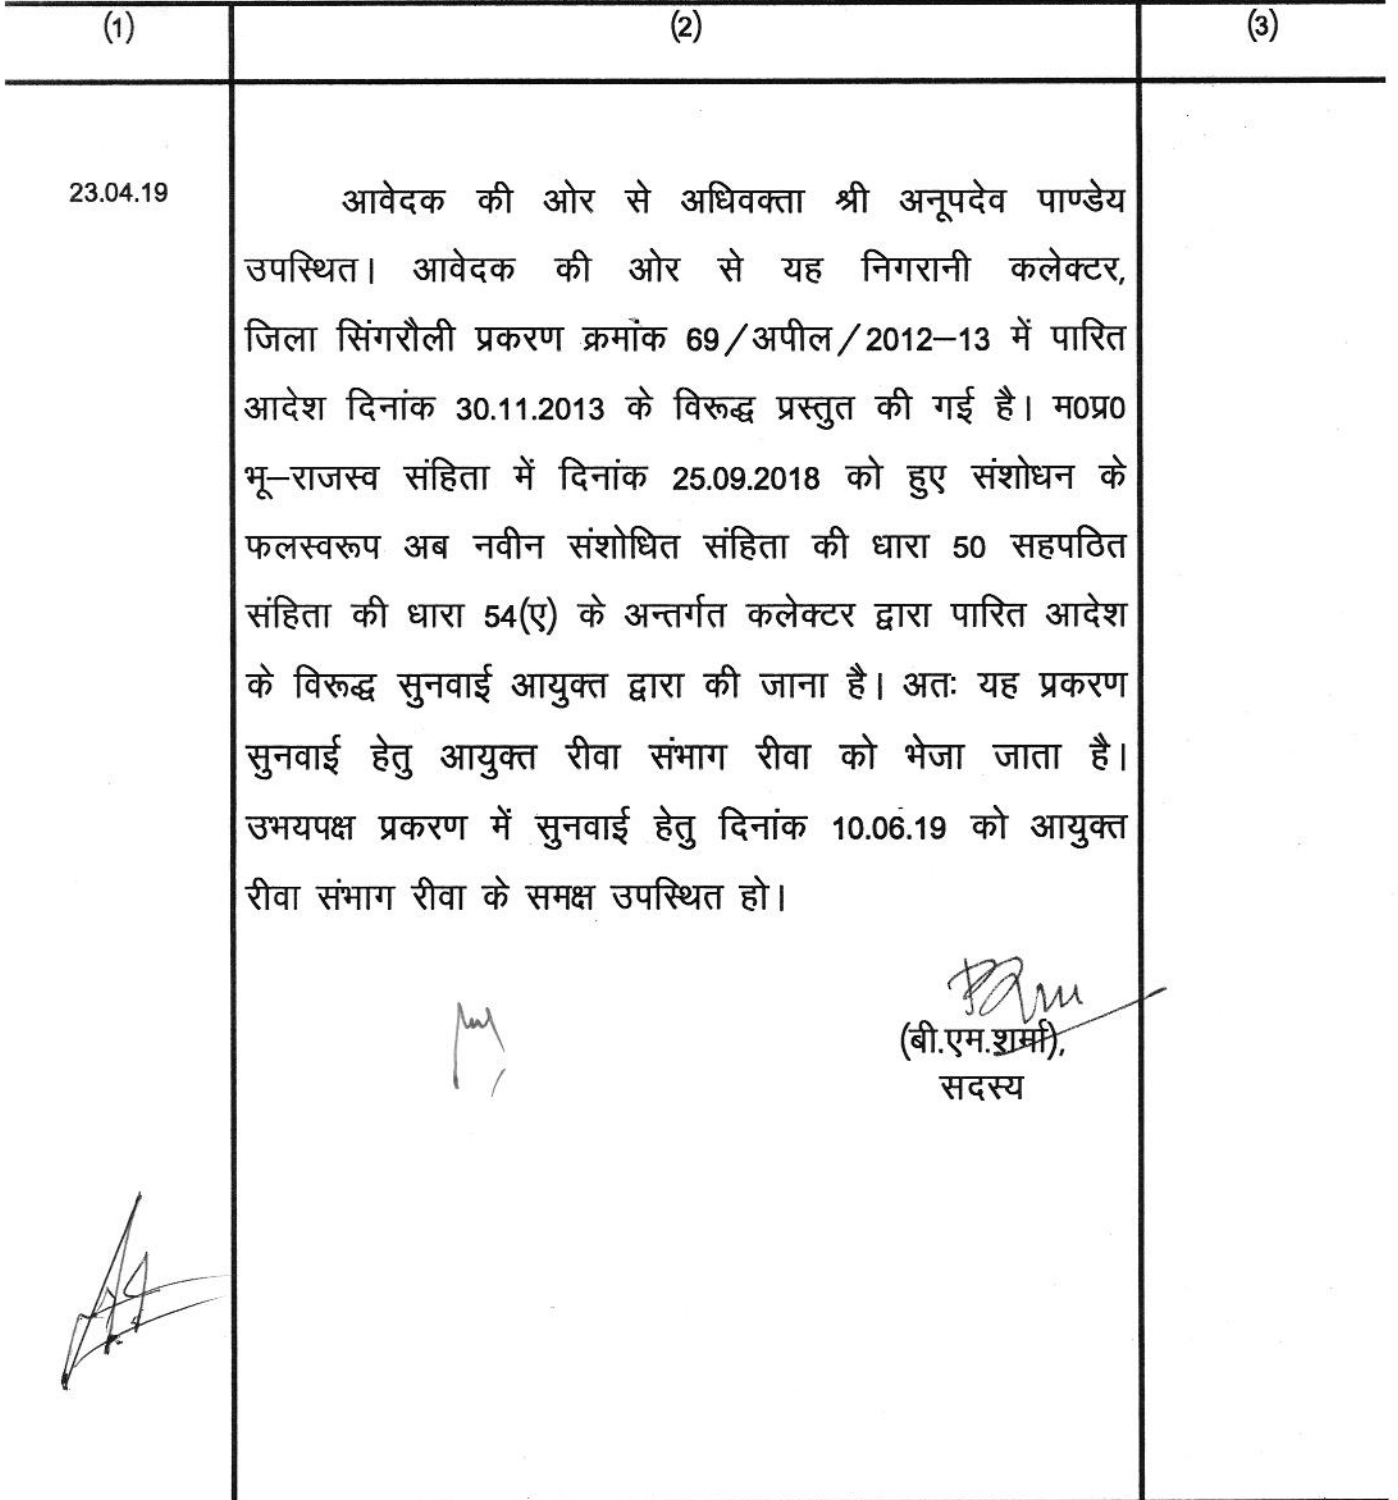 (1) (2) (3)
23.04.19
आवेदक की ओर से अधिवक्ता श्री अनूपदेव पाण्डेय
उपस्थित। आवेदक की ओर से यह निगरानी कलेक्टर,
जिला सिंगरौली प्रकरण क्रमांक 69/अपील/2012–13 में पारित
आदेश दिनांक 30.11.2013 के विरूद्ध प्रस्तुत की गई है। म0प्र0
भू–राजस्व संहिता में दिनांक 25.09.2018 को हुए संशोधन के
फलस्वरूप अब नवीन संशोधित संहिता की धारा 50 सहपठित
संहिता की धारा 54(ए) के अन्तर्गत कलेक्टर द्वारा पारित आदेश
के विरूद्ध सुनवाई आयुक्त द्वारा की जाना है। अतः यह प्रकरण
सुनवाई हेतु आयुक्त रीवा संभाग रीवा को भेजा जाता है।
उभयपक्ष प्रकरण में सुनवाई हेतु दिनांक 10.06.19 को आयुक्त
रीवा संभाग रीवा के समक्ष उपस्थित हो।
(बी.एम.शर्मा),
सदस्य